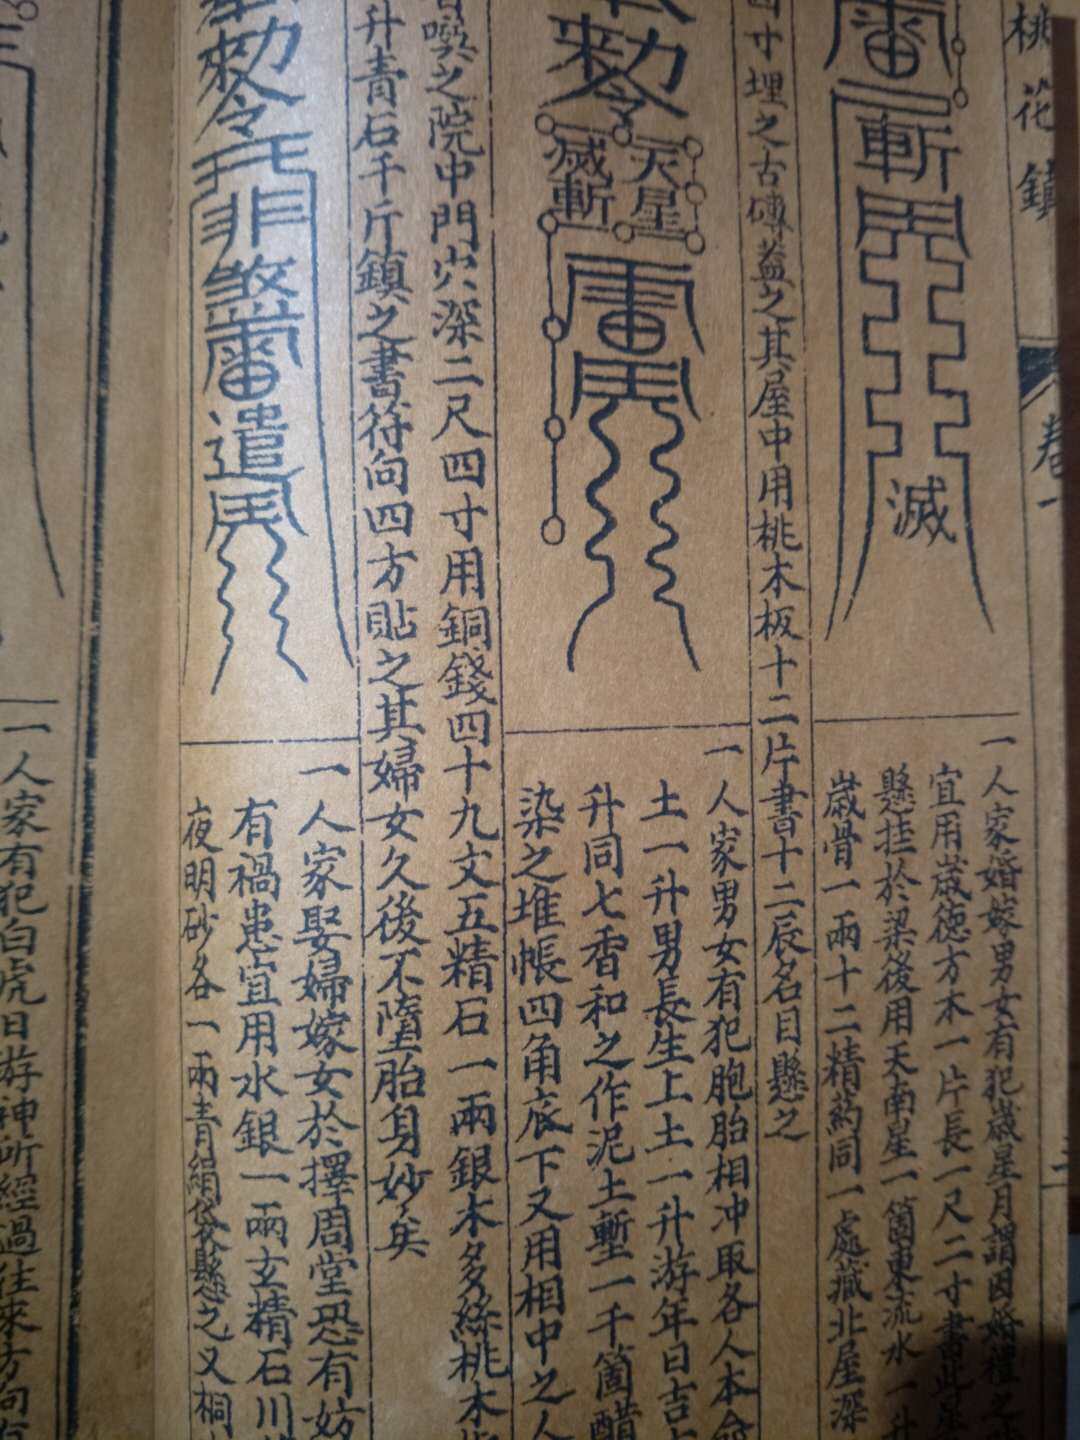 桃花鎮
卷一
二
斬
滅
一人家婚嫁男女有犯歲星月謂因婚禮之
宜用歲德方木一片長一尺二寸書此星
懸挂於梁後用天南星一箇東流水一升
歲骨一兩十二精药同一處藏北屋深
四寸埋之古磚蓋之其屋中用桃木板十二片書十二辰名目懸之
敕令
天星
滅斬
一人家男女有犯胞胎相冲取各人本命
土一升男長生上土一升游年日吉
升同七香和之作泥土塹一千箇醋
染之堆帳四角底下又用相中之人
噀之院中門穴深二尺四寸用銅錢四十九文五精石一兩銀木多絲桃木
升青石千斤鎮之書符向四方貼之其婦女久後不墮胎身妙矣
敕令
非
煞
遣
一人家娶婦嫁女於擇周堂恐有妨
有禍患宜用水銀一兩玄精石川
夜明砂各一兩青絹袋懸之又桐
一人家有犯白虎日游神所經過往來方向有